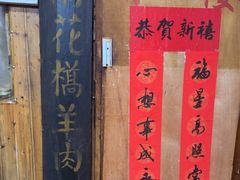 花橋羊肉
恭賀新禧
福星高照
心想事成